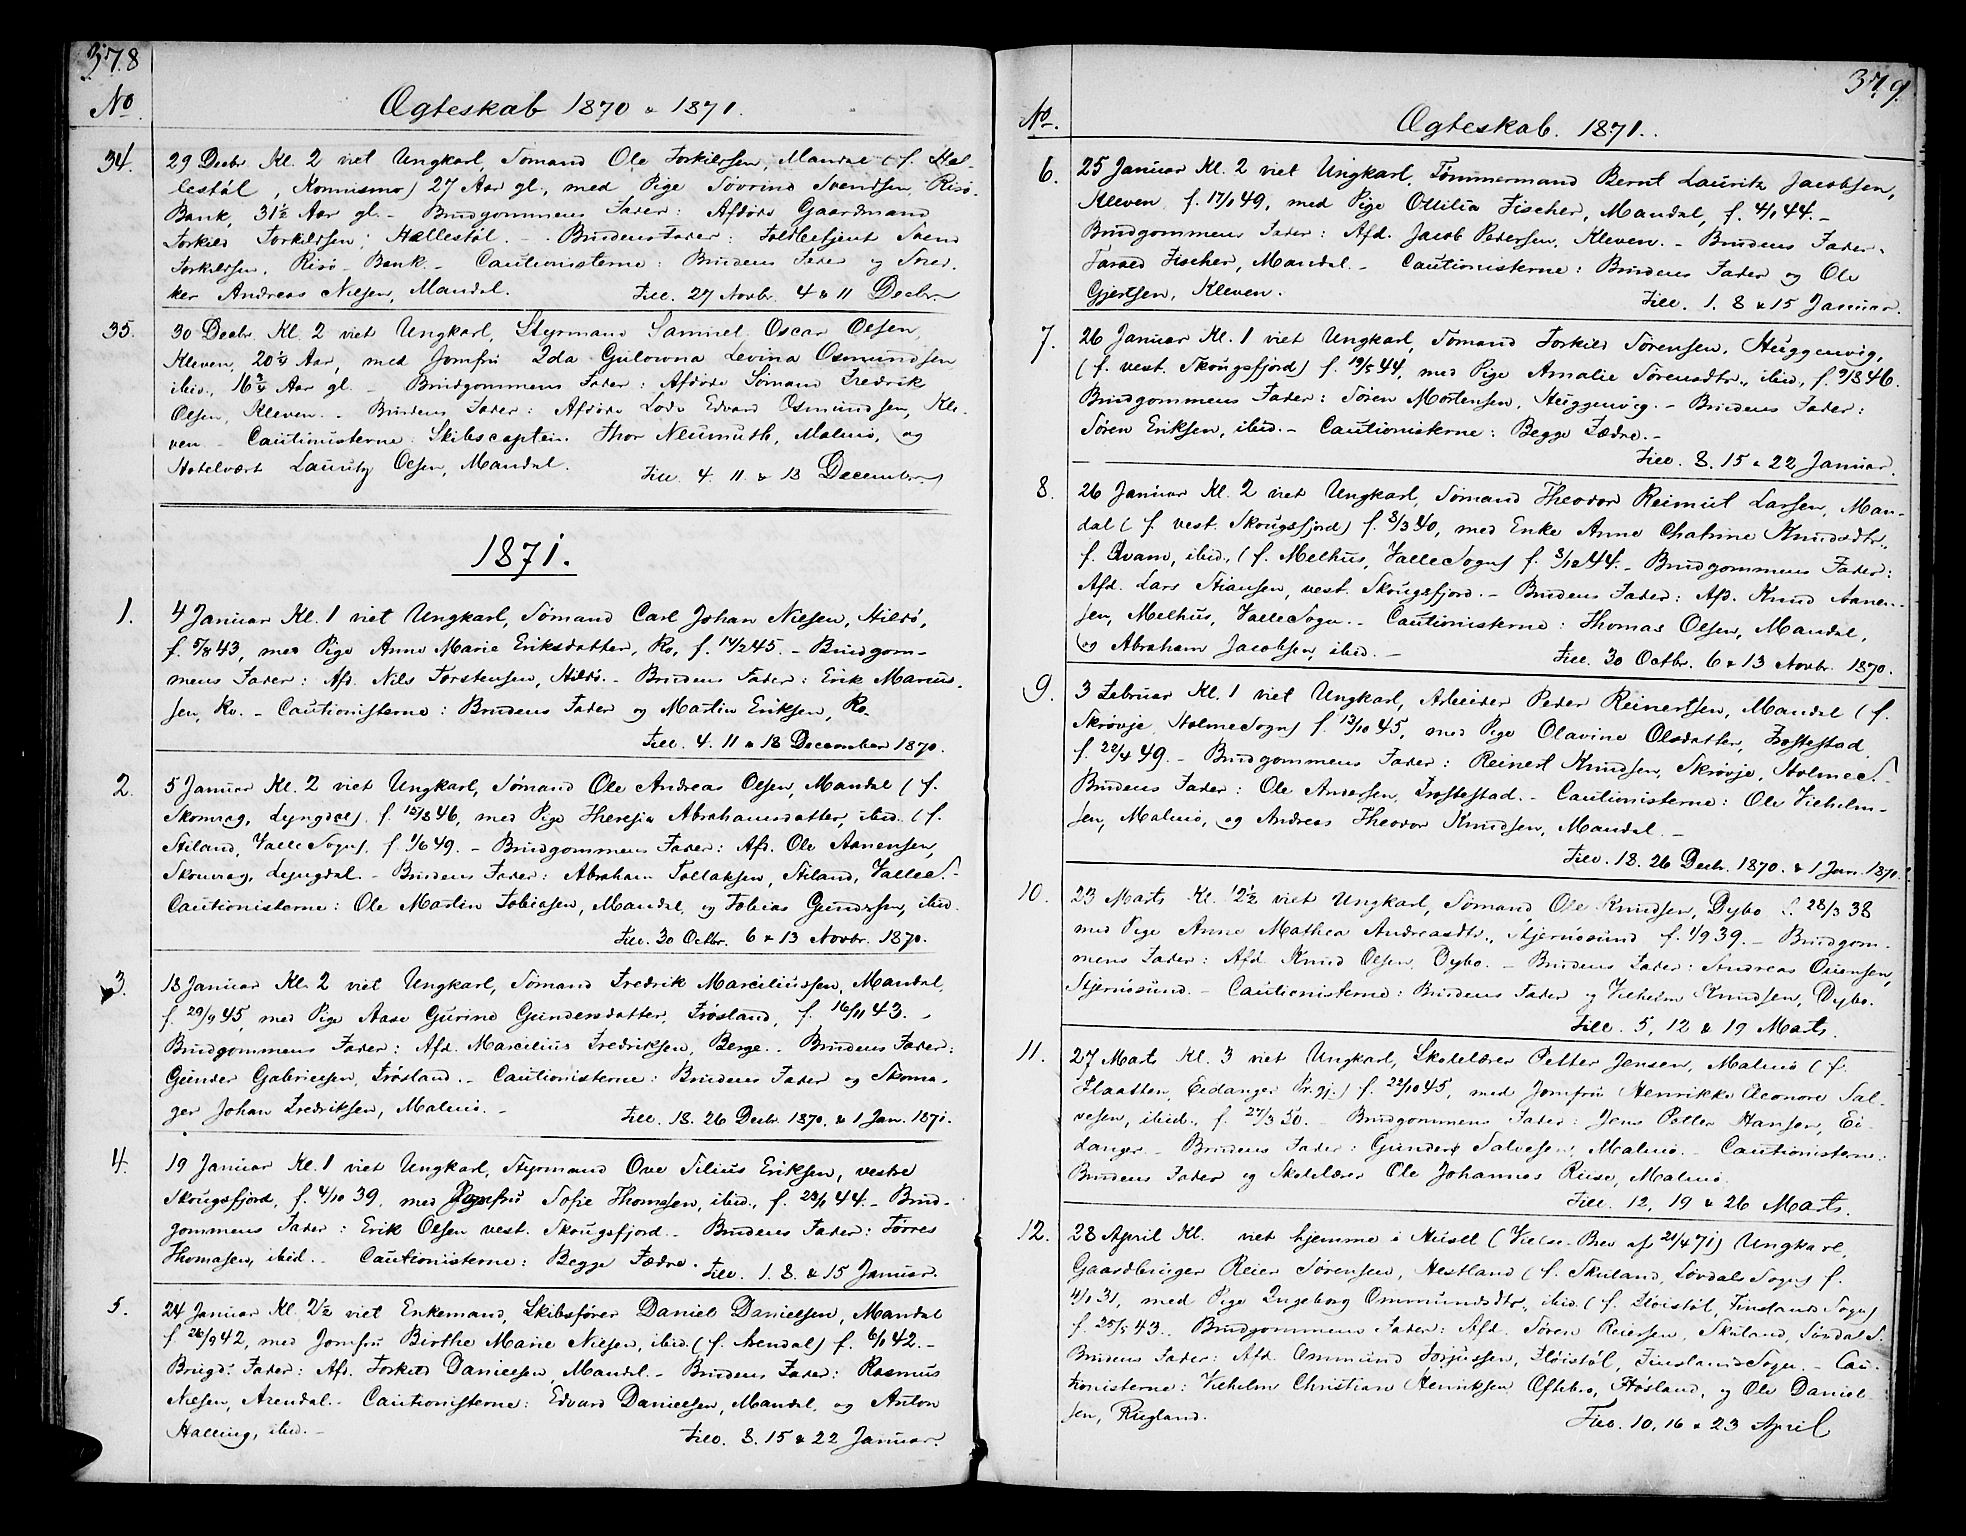 378
No
Ægteskab 1870 & 1871.
34.
29 Decbr. Kl. 2 viet Ungkarl, Sømand Ole Torkildsen, Mandal (f. Hal-
lestøl, Konnismo) 27 Aar gl., med Pige Søvrine Svendsen, Risø-
Bank, 31½ Aar gl. - Brudgommens Fader: Afdøde Gaardmand
Torkild Torkildsen, Hallestøl. - Brudens Fader: Toldbetjent Svend
Torkildsen, Risø-Bank. - Cautionisterne: Brudens Fader og Sned-
ker Andreas Nielsen, Mandal. Till. 27 Novbr. 4 & 11 Decbr.
35.
30 Decbr. Kl. 2 viet Ungkarl, Styrmand Samuel Oscar Olsen,
Kleven, 20¼ Aar, med Jomfru Ida Gulowna Levina Osmundsen
ibid., 16¾ Aar gl. - Brudgommens Fader: Afdøde Sømand Fredrik
Olsen, Kleven. - Brudens Fader: Afdøde Lods Edvard Osmundsen, Kle-
ven - Cautionisterne: Skibscaptein Thor Neumuth, Malmø, og
Hotelvært Lauritz Olsen, Mandal. Till. 4. 11. & 18 December
1871.
1.
4 Januar Kl. 1 viet Ungkarl, Sømand Carl Johan Nielsen, Hildø,
f. 5/8 43, med Pige Anne Marie Eriksdatter, Ro, f. 14/2 45. - Brudgom-
mens Fader: Afd. Nils Torstensen, Hildø. - Brudens Fader: Erik Marcus-
sen, Ro. - Cautionisterne: Brudens Fader og Martin Eriksen, Ro.
Till. 4. 11 & 18 December 1870.
2.
5 Januar Kl. 2 viet Ungkarl, Sømand Ole Andreas Olsen, Mandal (f.
Skomrag, Lyngdal) f. 15/8 46, med Pige Theresia Abrahamsdatter, ibid. (f.
Stiland, Valle Sogn) f. 1/6 49. - Brudgommens Fader: Afd. Ole Aanensen,
Skomrag, Lyngdal. - Brudens Fader: Abraham Tollaksen, Stiland, Valle S. -
Cautionisterne: Ole Martin Tobiasen, Mandal, og Tobias Gundersen, ibid.
Till. 30 Octbr. 6 & 13 Novbr. 1870.
3.
18 Januar Kl. 2 viet Ungkarl, Sømand Fredrik Marciliussen, Mandal,
f. 29/9 45, med Pige Aase Gurine Gundersdatter, Frøsland, f. 16/11 43. -
Brudgommens Fader: Afd. Marcilius Fredriksen, Berge. - Brudens Fader:
Gunder Gabrielsen, Frøsland. - Cautionisterne: Brudens Fader og Skoma-
ger Johan Fredriksen, Malmø. - Till. 18. 26 Decbr. 1870. & 1 Jan. 1871.
4.
19 Januar Kl. 1 viet Ungkarl, Styrmand Ove Silius Eriksen, vestre
Skougsfjord, f. 4/10 39, med Jomfru Sofie Thomasen, ibid., f. 23/1 44. - Brud-
gommens Fader: Erik Olsen vest. Skougsfjord. - Brudens Fader: Tørres
Thomasen, ibid. - Cautionisterne: Begge Fædre. Till. 1. 8. & 15 Januar.
5.
24 Januar Kl. 2½ viet Enkemand, Skibsfører Daniel Danielsen, Mandal
f. 26/9 42, med Jomfru Birthe Marie Nielsen, ibid. (f. Arendal) f. 6/1 42. -
Brugd: Fader: Afd. Torkild Danielsen, Mandal. - Brudens Fader: Rasmus
Nielsen, Arendal. - Cautionisterne: Edvard Danielsen, Mandal, og Anton
Halling, ibid. - Till. 8. 15 & 22 Januar.
379.
No.
Ægteskab. 1871.
6.
25 Januar Kl. 2 viet Ungkarl, Tømmermand Bernt Lauritz Jacobsen,
Kleven, f. 17/1 49, med Pige Ottilia Fischer, Mandal, f. 4/1 44. -
Brudgommens Fader: Afd. Jacob Pedersen, Kleven. - Brudens Fader:
Fischer, Mandal. - Cautionisterne: Brudens Fader og Ole
Gjertsen, Kleven. Till. 1. 8 & 15 Januar.
7.
26 Januar Kl. 1 viet Ungkarl, Sømand Torkild Sørensen, Heggenvig,
(f. vest. Skougsfjord) f. 19/5 44, med Pige Amalie Sørensdtr., ibid., f. 9/8 46.
Brudgommens Fader: Søren Mortensen, Heggenvig. - Brudens Fader:
Søren Eriksen, ibid. - Cautionisterne: Begge Fædre. -
Till. 8. 15 & 22 Januar.
8.
26 Januar Kl. 2 viet Ungkarl, Sømand Theodor Reimert Larsen, Man-
dal (f. vest. Skougsfjord) f. 8/3 40, med Enke Anne Chatrine Knudsdtr.,
f. Qvam, ibid., (f. Melhus, Valle Sogn) f. 8/12 44. - Brudgommens Fader:
Afd. Lars Stiansen, vest. Skougsfjord. - Brudens Fader: Afd. Knud Aanen-
sen, Melhus, Valle Sogn. - Cautionisterne: Thomas Olsen, Mandal,
og Abraham Jacobsen, ibid. - Till. 30 Octbr. 6 & 13 Novbr. 1870.
9.
3 Februar Kl. 1 viet Ungkarl, Arbeider Peder Reinertsen, Mandal (f.
Skrøvje, Holme Sogn) f. 13/10 45, med Pige Olavine Olsdatter, Frøstestad
f. 22/4 49. - Brudgommens Fader: Reinert Knudsen, Skrøvje, Holme S. -
Brudens Fader: Ole Andersen, Frøstestad. - Cautionisterne: Ole Vilhelm-
sen, Malmø, og Andreas Theodor Knudsen, Mandal. -
Till. 18. 26 Decbr. 1870. & 1 Jan. 1870.
10.
23 Marts Kl. 12½ viet Ungkarl, Sømand Ole Knudsen, Dybo f. 28/3 38
med Pige Anne Mathea Andreasdtr., Stjernesund f. 1/9 39. - Brudgom-
mens Fader: Afd. Knud Olsen, Dybo. - Brudens Fader: Andreas Ouensen,
Stjernesund. - Cautionisterne: Brudens Fader og Vilhelm Knudsen, Dybo.
Till. 5, 12 & 19 Marts.
11.
27 Marts Kl. 3 viet Ungkarl, Skolelærer Petter Jensen, Malmø (f.
Flaatten, Eidanger Pr.gj.) f. 22/10 45, med Jomfru Henrikke Eleonore Sal-
vesen, ibid., f. 27/3 50. - Brudgommens Fader: Jens Petter Hansen, Ei-
danger. - Brudens Fader: Gunder Salvesen, Malmø. - Cautionisterne:
Brudens Fader og Skolelærer Ole Johannes Riise, Malmø.
Till. 12, 19 & 26 Marts.
12.
28 April Kl. viet hjemme i Huset (Vielse-Brev af 21/4 71) Ungkarl,
Gaardbruger Reier Sørensen, Hestland (f. Skuland, Løvdals Sogn) f.
4/1 31, med Pige Ingeborg Ommundsdtr., ibid. (f. Fløistøl, Finsland Sogn)
f. 25/5 43. Brudgommens Fader: Afd. Søren Reiersen, Skuland, Søndal S.
Brudens Fader: Afd. Ommund Torjussen, Fløistøl, Finslands Sogn. - Cau-
tionisterne: Vilhelm Christian Henriksen Oftebro, Høsland, og Ole Daniel-
sen, Rugland. Till. 10, 16 & 23 April